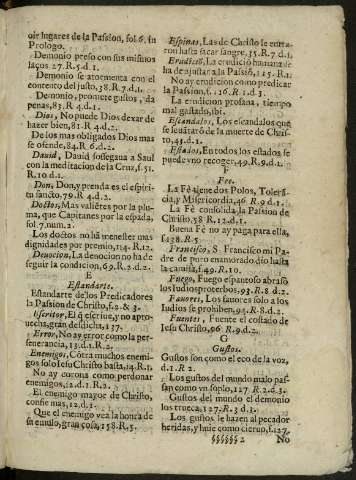 oir lugares de la Passion, fol.6. in
Prologo.
Demonio preso con sus mismos
laços 27.R.5.d.1.
Demonio se atormenta con el
contento del justo, 38.R.7.d.1.
Demonio, promete gustos, da
penas, 83.R.4.d.1.
Dios, No puede Dios dexar de
hazer bien, 81.R.4.d.2.
De los mas obligados Dios mas
se ofende, 84.R.6.d.2.
Dauid, Dauid sossegaua a Saul
con la meditacion de la Cruz, f.51.
R.10.d.1.
Don, Don, y prenda es el espiri-
tu santo, 79.R.4.d.2.
Doctos, Mas valiera por la plu-
ma, que Capitanes por la espada,
fol.7.num.2.
Los doctos no há menester mas
dignidades por premio, 114.R.12.
Deuocion, La deuocion no ha de
seguir la condicion, 69.R.2.d.2.
E
Estandarte.
Estandarte de los Predicadores
la Passion de Christo, 6.2. & 3.
Escritor, El q̃ escriue, y no apro-
uecha, gran desdicha, 137.
Error, No ay error como la per-
seuerancia, 13.d.1.R.2.
Enemigos, Cõtra muchos enemi-
gos solo Iesu Christo basta, 14.R.1.
No ay corona como perdonar
enemigos, 12.d.1.R.2.
El enemigo mayor de Christo,
confiesa mas, 12.d.1.
Que el enemigo vea la honra de
su emulo, gran cosa, 158.R.5.
Espinas, Las de Christo le entra-
ron hasta sacar sangre, 35.R.7.d.1.
Erudició, La erudició humana de
ha de ajustar a la Passió, 115.R.1.
No ay erudicion como predicar
la Passion, f.116.R.1.d.3.
La erudicion profana, tiempo
mal gastado, ibi.
Escandalos, Los escandalos que
se leuãtarõ de la muerte de Chris-
to, 45.d.1.
Estados, En todos los estados se
puede vno recoger, 49.R.9.d.1.
F
Fee.
La Fè tiene dos Polos, Tolerã-
cia, y Misericordia, 46.R.9.d.1.
La Fè consolida la Passion de
Christo, 58.R.12.d.1.
Buena Fè no ay paga para ella,
f.138.R.5.
Francisco, S. Francisco mi Pa-
dre de puro enamorado dio hasta
la camisa, f.49.R.10.
Fuego, Fuego espantoso abrasò
los Iudios proteruos, 93.R.8.d.2.
Fauores, Los fauores solo a los
Iudios se prohiben, 94.R.8.d.2.
Fuentes, Fuente el costado de
Iesu Christo, 96.R.9.d.2.
G
Gustos.
Gustos son como el eco de la voz,
d.1.R.2.
Los gustos del mundo malo pas-
san como vn suplo, 127.R.2.d.3.
Gustos del mundo el demonio
los trueca, 127.R.3.d.3.
Los gustos le hazen al pecador
heridas, y huie como cieruo, f.127.
§§§§§§ 2 No